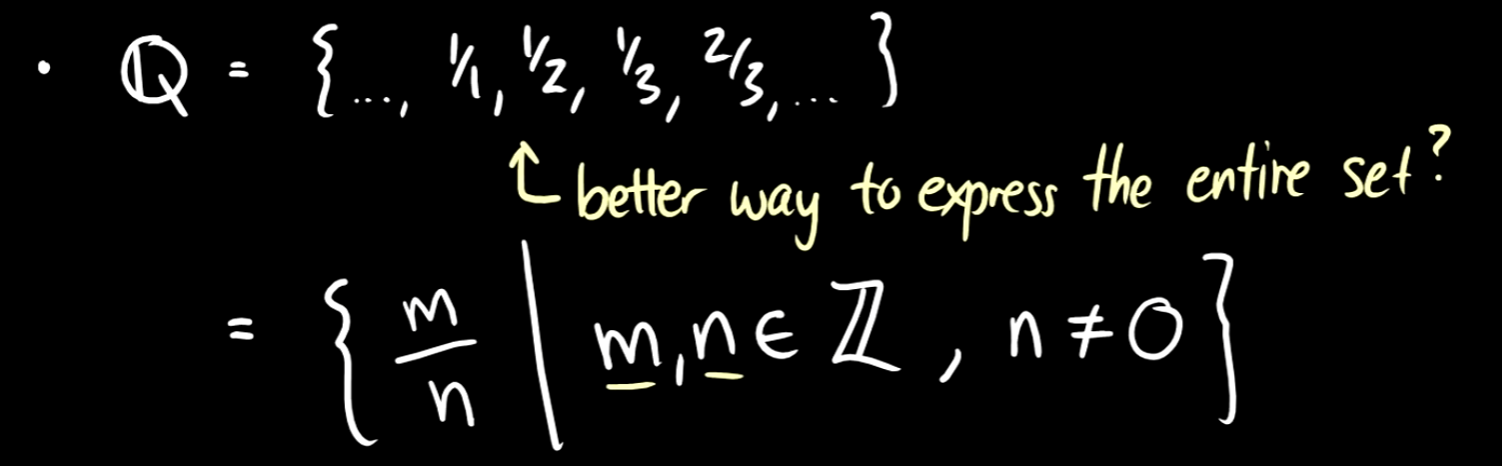 • ℚ = {..., 1/1, 1/2, 1/3, 2/3, ... }
↑ better way to express the entire set?
= { m/n | m, n ∈ ℤ, n ≠ 0 }